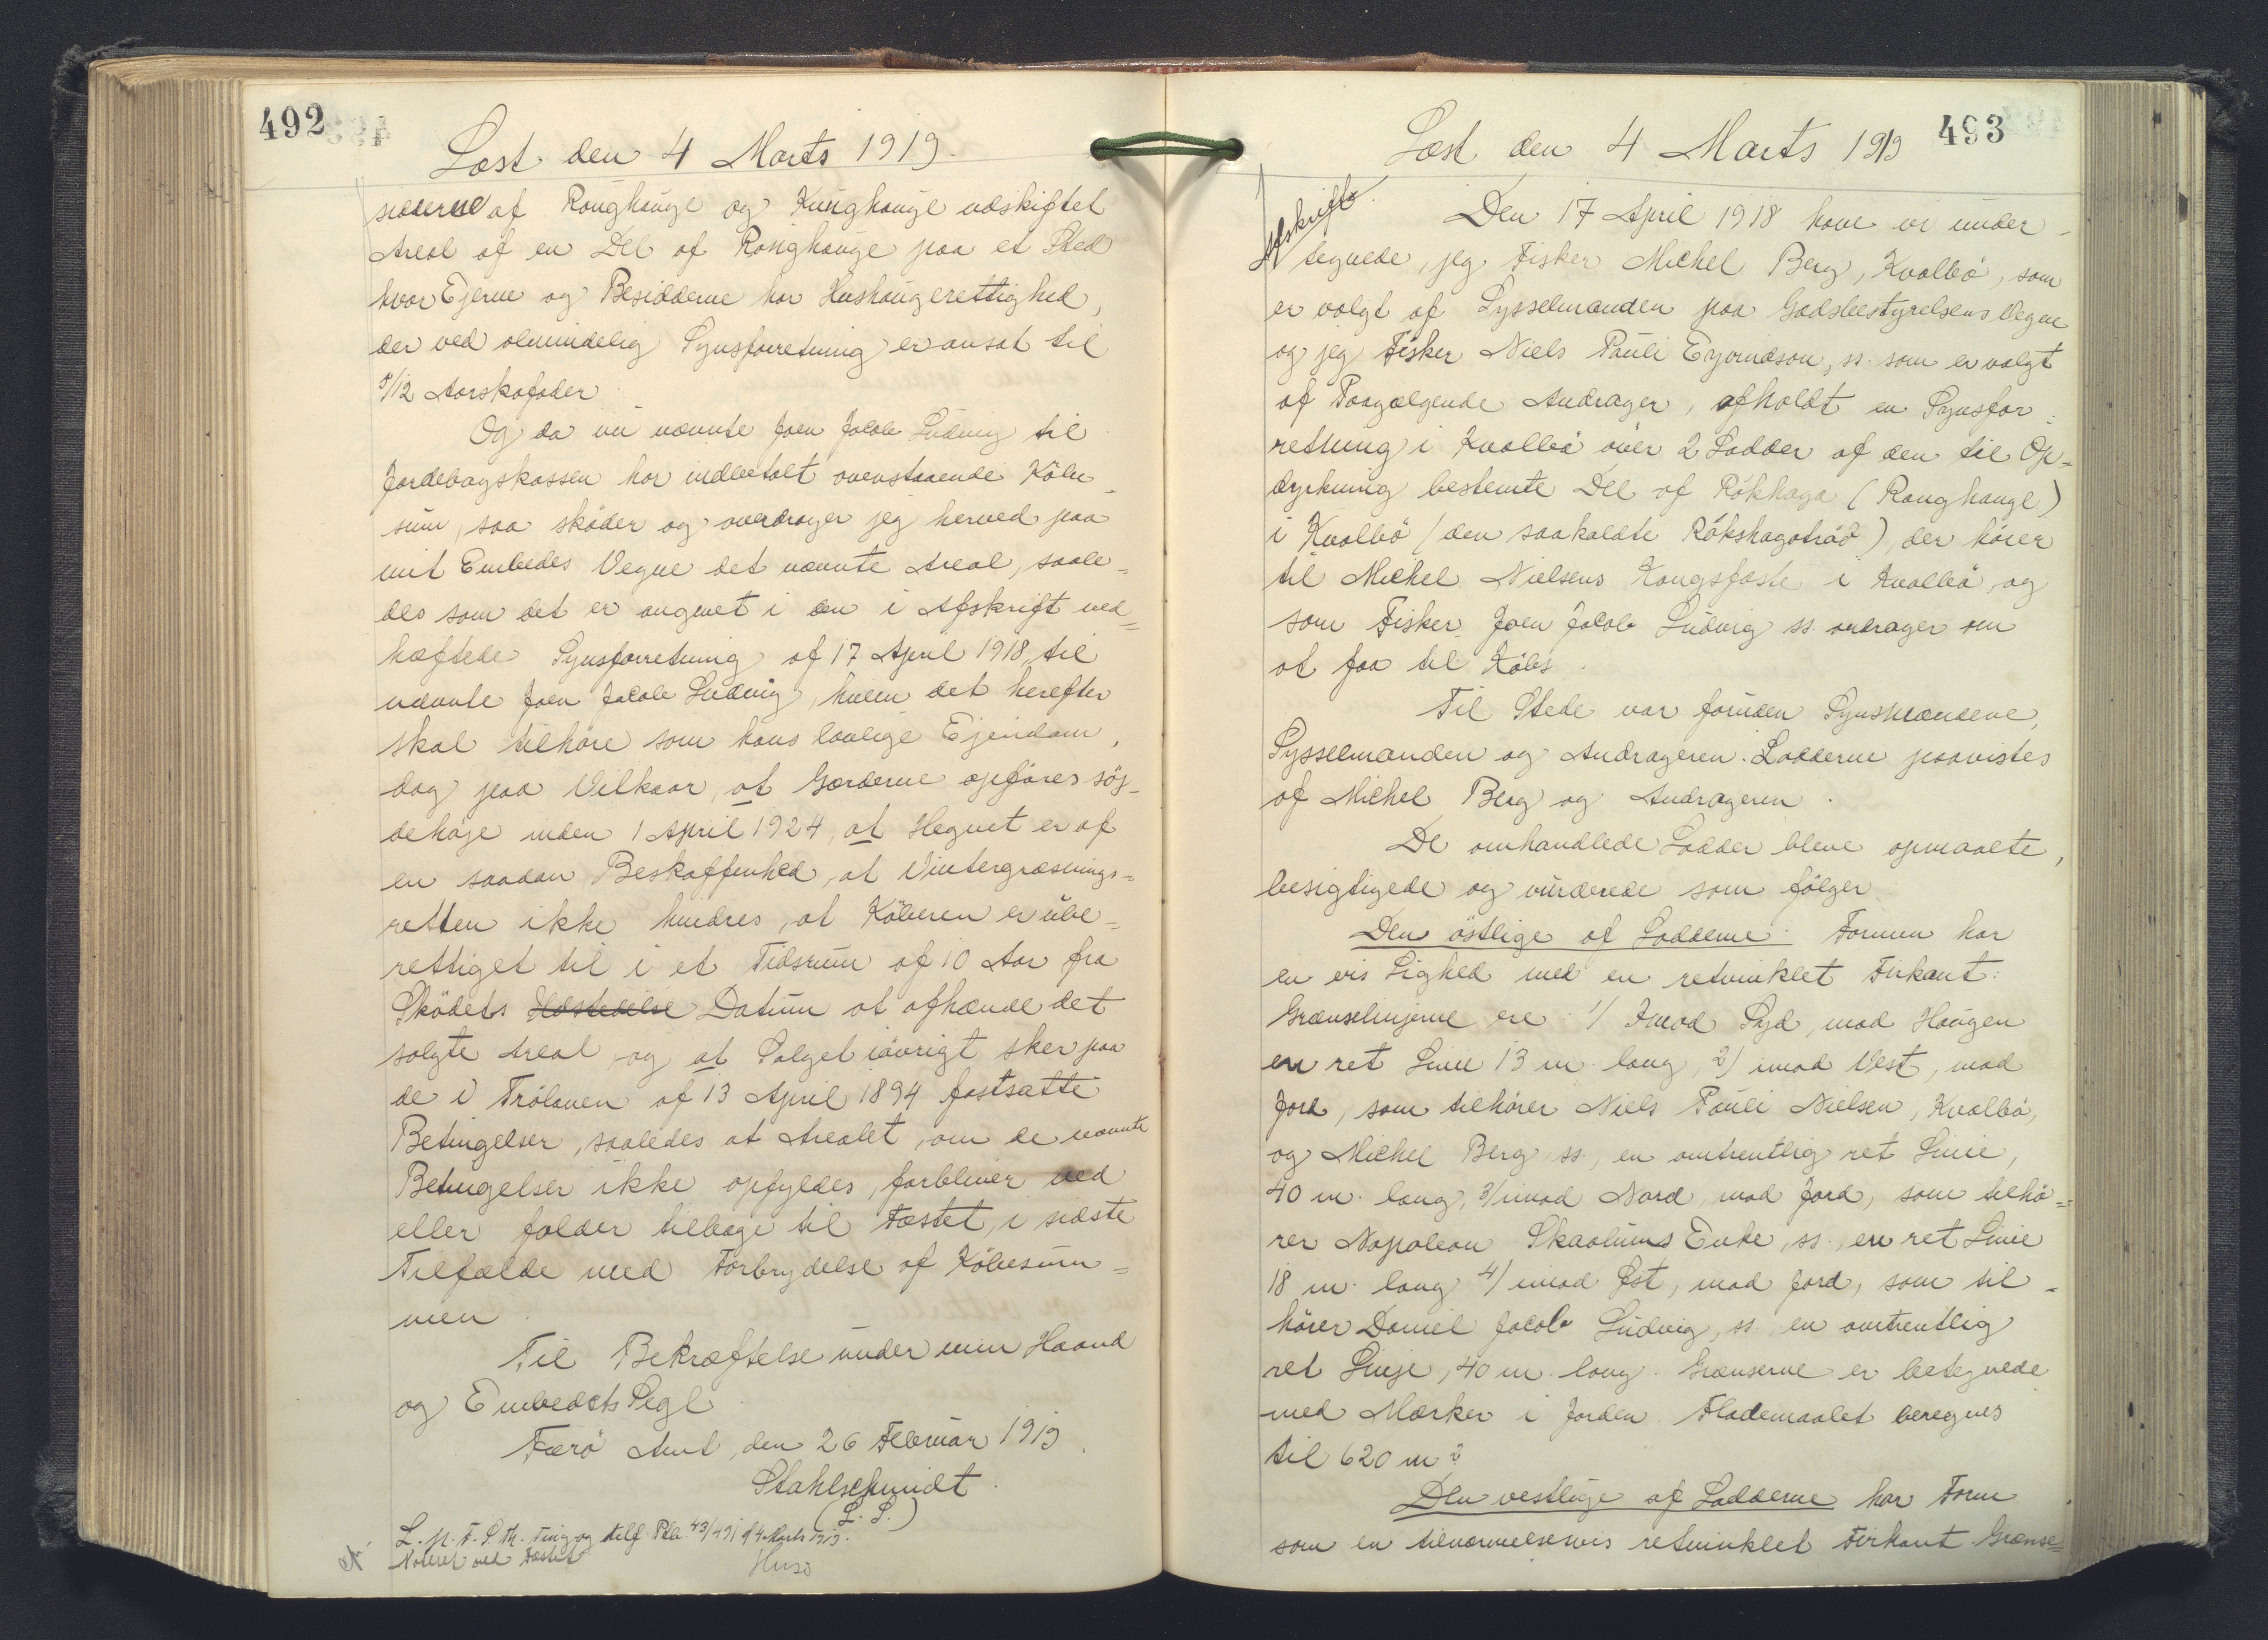 492
Læst den 4 Marts 1919.
sidderne af Roughauge og Kunghauge udskiftet
Areal af en Del af Roughauge paa et Sted
hvor Ejerne og Besidderne har Hushaugerettighed,
der ved almindelig Synsforretning er ansat til
5/12 Aarskofoder
Og da nu nævnte Joen Jacob Ludvig til
Jordebogskassen har indbetalt ovenstaaende Købe-
sum, saa skøder og overdrager jeg herved paa
mit Embedes Vegne det nævnte Areal, saale=
des som det er angivet i den i Afskrift ved=
hæftede Synsforretning af 17 April 1918, til
nævnte Joen Jacob Ludvig, hvem det herefter
skal tilhøre som hans lovlige Ejendom,
dog paa Vilkaar, at Gærderne opføres söj-
dehøje inden 1 April 1924, at Hegnet er af
en saadan Beskaffenhed, at Vintergræsnings=
retten ikke hindres, at Køberen er ube=
rettiget til i et Tidsrum af 10 Aar fra
Skødets Udstedelse Datum at afhænde det
solgte Areal, og at Salget iøvrigt sker paa
de i Trölaven af 13 April 1894 fastsatte
Betingelser, saaledes at Arealet, om de nævnte
Betingelser ikke opfyldes, forbliver ved
eller falder tilbage til Fæstet, i sidste
Tilfælde med Forbrydelse af Købesum=
men
Til Bekræftelse under min Haand
og Embedets Segl
Færø Amt, den 26 Februar 1919.
Stahlschmidt.
(L. S.)
L. p. F. S. Th. Ting og tilf Pk. 43/491 d 4 Marts 1919.
Noteret ved Fæstet
Huso
493
Læst den 4 Marts 1919
Afskrift.
Den 17 April 1918 have vi under-
tegnede, jeg Fisker Michel Berg, Kvalbø, som
er valgt af Sysselmanden paa Godsbestyrelsens Vegne
og jeg Fisker Niels Pauli Ejomdson, ss. som er valgt
af Paagælgende Andrager, afholdt en Synsfor=
retning i Kvalbø over 2 Lodder af den til Op=
dyrkning bestemte Del af Rókhaga (Roughauge)
i Kvalbø (den saakaldte Rókshagatráð), der hører
til Michel Nielsens Kongsfæste i Kvalbø, og
som Fisker Joen Jacob Ludvig ss. andrager om
at faa til Købs.
Til Stede var foruden Synsmændene,
Sysselmanden og Andrageren. Lodderne paavistes
af Michel Berg og Andrageren.
De omhandlede Lodder bleve opmaalte,
besigtigede og vurderede som følger
Den østlige af Lodderne. Formen har
en vis Lighed med en retvinklet Firkant.
Grænselinjerne ere: 1/ Imod Syd, mod Haugen
en ret Linie 13 m. lang, 2/ imod Vest, mod
Jord, som tilhører Niels Pauli Nielsen, Kvalbø,
og Michel Berg ss., en omtrentlig ret Linie,
40 m. lang, 3/ imod Nord, mod Jord, som tilhø=
rer Napoleon Skaalums Enke, ss., en ret Linie
18 m. lang 4/ imod Øst, mod Jord, som til=
hører Daniel Jacob Ludvig, ss. en omtrentlig
ret Linje, 40 m. lang. Grænserne er betegnede
med Mærker i Jorden. Flademaalet beregnes
til 620 m²
Den vestlige af Lodderne har Form
som en tilnærmelsesvis retvinklet Firkant. Grænse=